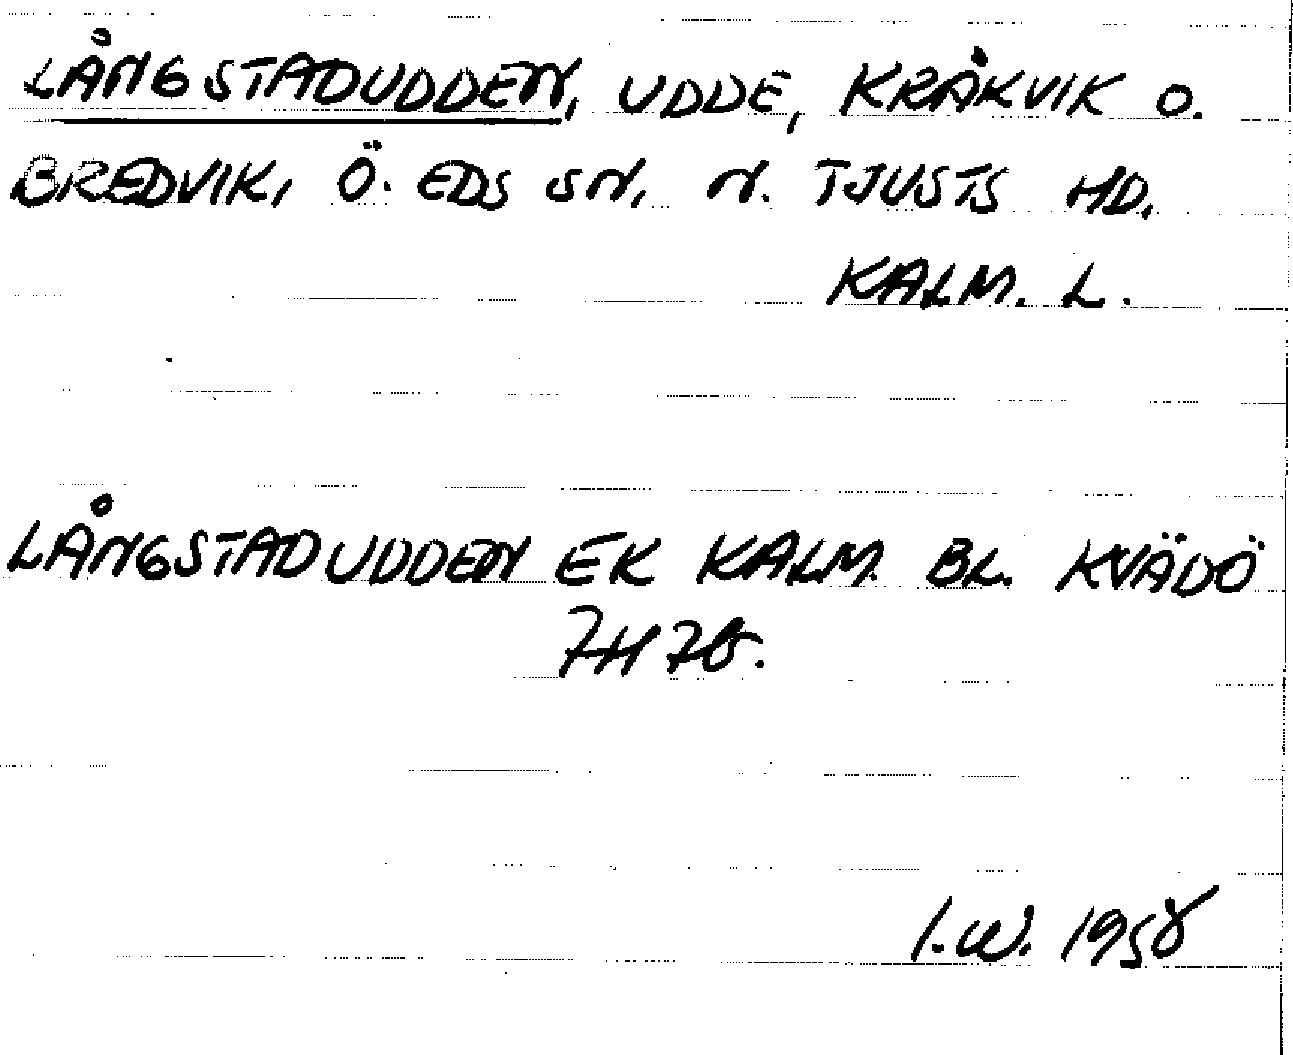 LÅNGSTADUDDEN, UDDE, KRÅKVIK O.
BREDVIK, Ö. EDS SN. N. TJUSTS HD.
KALM. L.
LÅNGSTADUDDEN EK KALM. BL. KVÄDÖ
7H 7b.
I.W. 1958